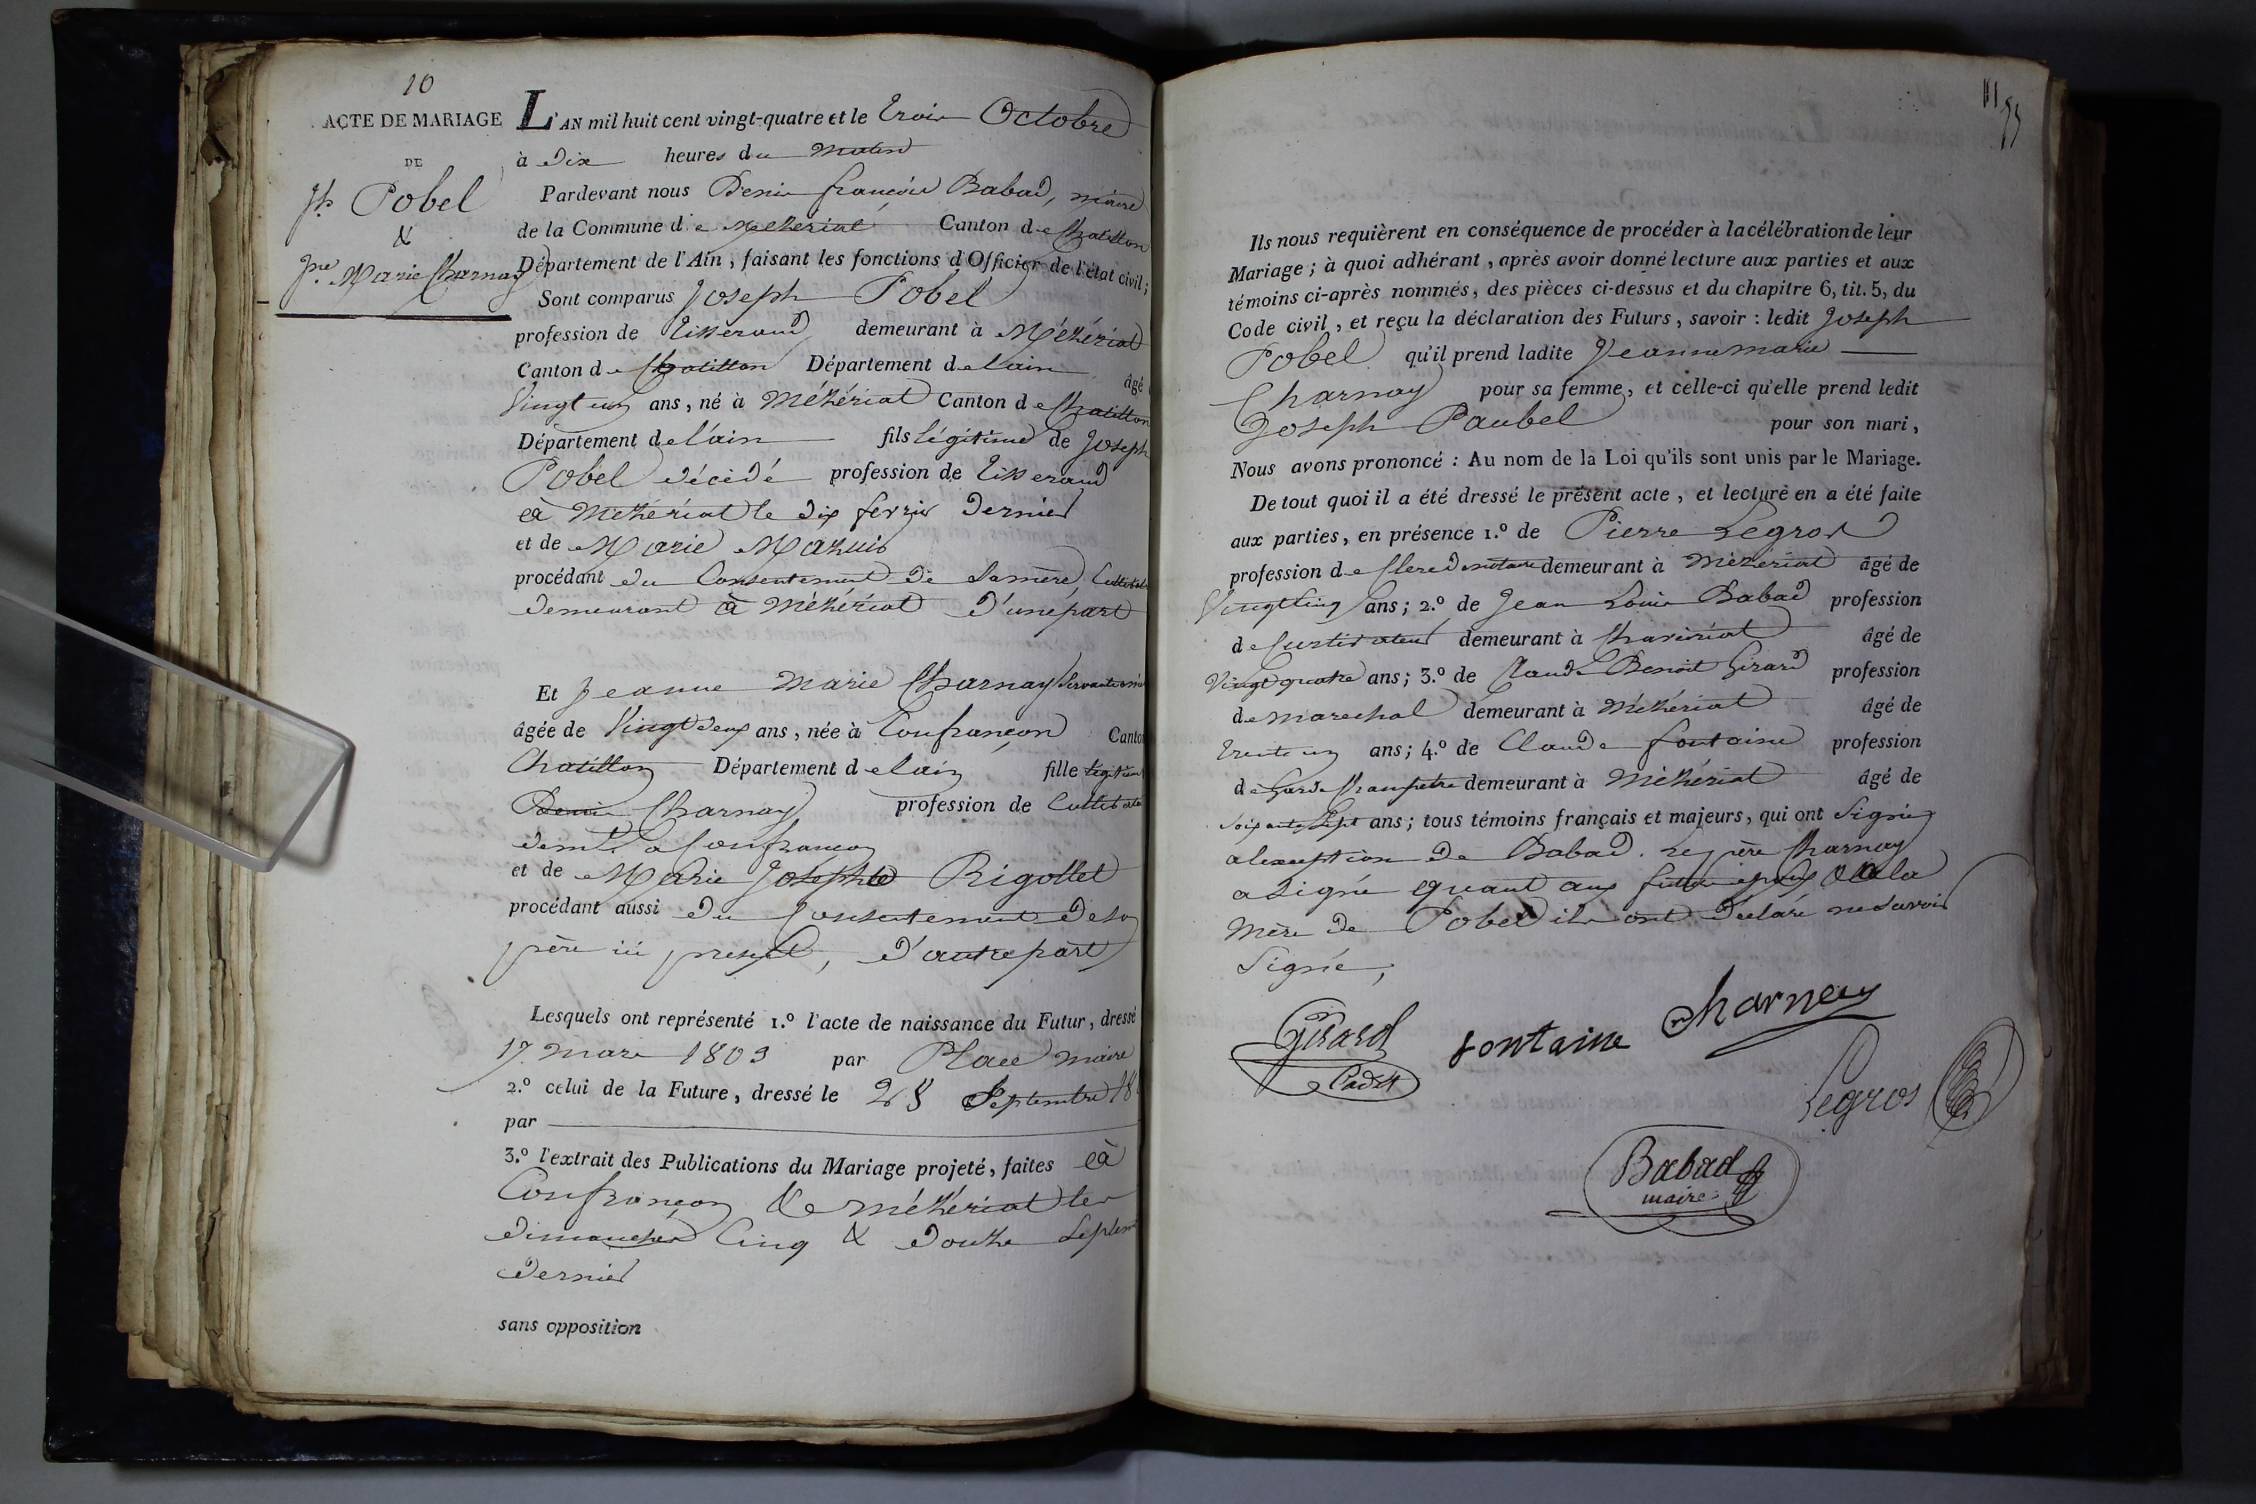 10
ACTE DE MARIAGE
DE
Jh. Pobel
&
Jne. Marie Charnay
L'AN mil huit cent vingt-quatre et le trois Octobre
à dix heures du matin
Pardevant nous Denis françois Babad, maire
de la Commune de Mézériat Canton de Chatillon
Département de l'Ain, faisant les fonctions d'Officier de l'état civil;
Sont comparus Joseph Pobel
profession de tisserand demeurant à Mézériat
Canton de Chatillon Département de lain âgé
vingt un ans, né à Mézériat Canton de Chatillon
Département de l'ain fils légitime de Joseph
Pobel décédé profession de tisserand
à Mézériat le dix fevrier dernier
et de Marie Mazuis
procédant du Consentement de sa mère
demeurant à Mézériat d'une part
Et Jeanne Marie Charnay servante
âgée de vingt deux ans, née à Confrançon Canton
Chatillon Département de lain fille légitime
Denis Charnay profession de Cultivateur
demt. à Confrançon
et de Marie Josephte Rigollet
procédant aussi du Consentement de son
père ici présent, d'autre part
Lesquels ont représenté 1.º l'acte de naissance du Futur, dressé
17 mars 1803 par Place maire
2.º celui de la Future, dressé le 28 Septembre 18
par
3.º l'extrait des Publications du Mariage projeté, faites à
Confrançon & Mézériat les
dimanches Cinq & douze Septem
dernier
sans opposition
11
Ils nous requièrent en conséquence de procéder à la célébration de leur
Mariage; à quoi adhérant, après avoir donné lecture aux parties et aux
témoins ci-après nommés, des pièces ci-dessus et du chapitre 6, tit. 5, du
Code civil, et reçu la déclaration des Futurs, savoir: ledit Joseph
Pobel qu'il prend ladite Jeanne marie
Charnay pour sa femme, et celle-ci qu'elle prend ledit
Joseph Paubel pour son mari,
Nous avons prononcé: Au nom de la Loi qu'ils sont unis par le Mariage.
De tout quoi il a été dressé le présent acte, et lecture en a été faite
aux parties, en présence 1.º de Pierre Legros
profession de Clerc de notaire demeurant à Mézériat âgé de
vingt cinq ans; 2.º de Jean Louis Babad profession
de Cultivateur demeurant à Chaveyriat âgé de
vingt quatre ans; 3.º de Claude Benoit Girard profession
de marechal demeurant à Mézériat âgé de
trente un ans; 4.º de Claude fontaine profession
de garde champetre demeurant à Mézériat âgé de
soixante sept ans; tous témoins français et majeurs, qui ont signé
a lexception de Babad. Le père Charnay
a signé quant aux futurs epoux & a la
mère de Pobel ils ont déclaré ne savoir
signé,
Girard
Cadet
fontaine
Charnay
Legros
Babad
maire